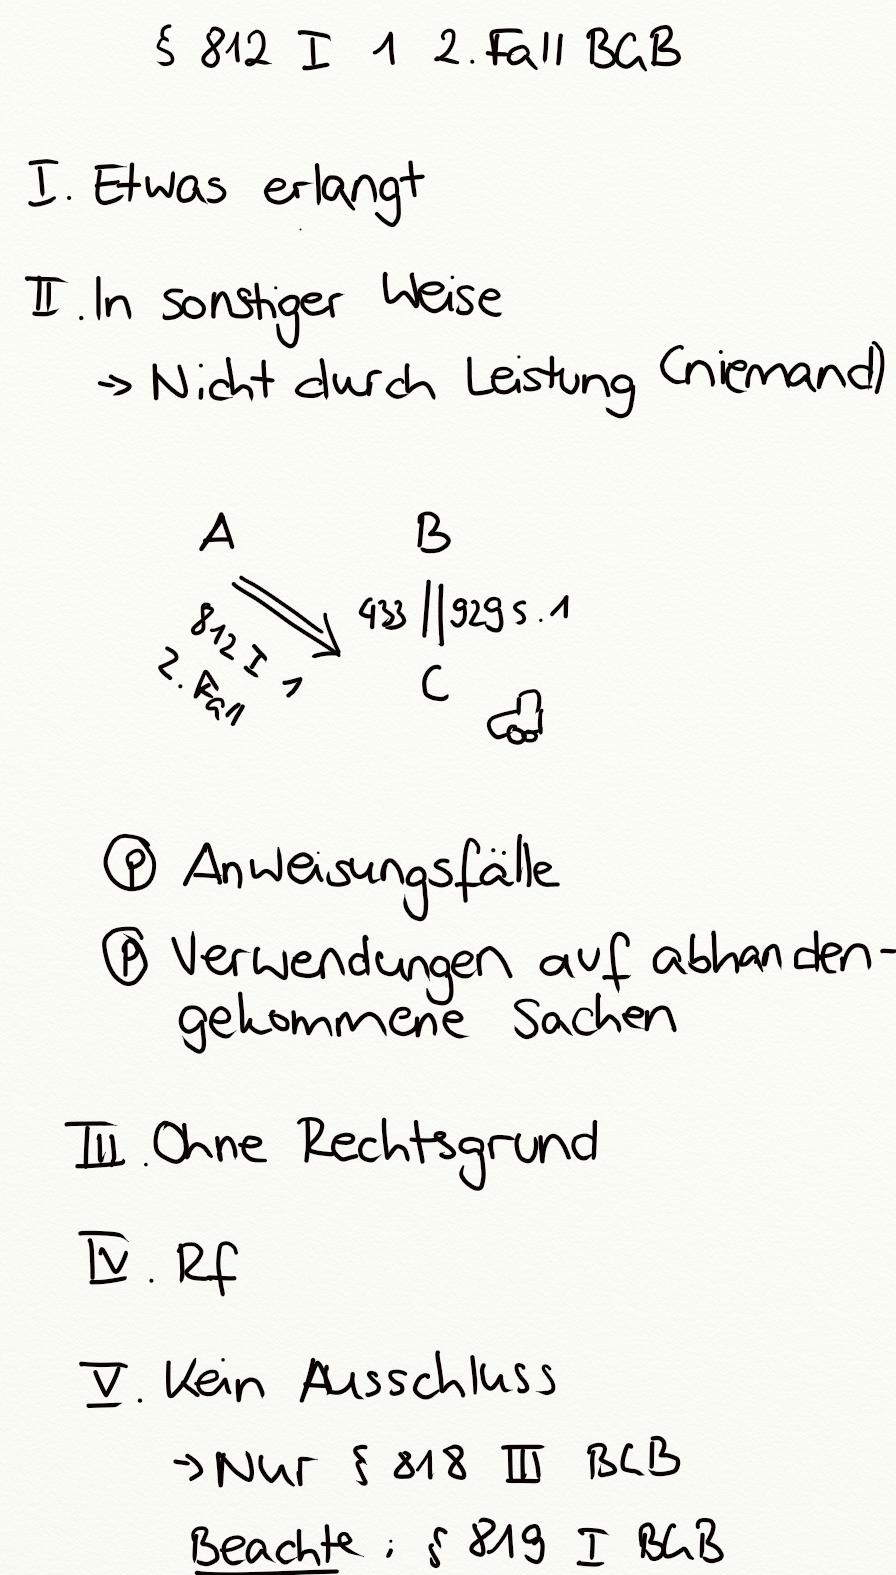 § 812 I 1 2. Fall BGB
I. Etwas erlangt
II. In sonstiger Weise
→ Nicht durch Leistung (niemand)
A B
812 I 1
2. Fall
433 || 929 S. 1
C
Ⓟ Anweisungsfälle
Ⓟ Verwendungen auf abhanden-
gekommene Sachen
III. Ohne Rechtsgrund
IV. Rf
V. Kein Ausschluss
→ Nur § 818 III BGB
Beachte: § 819 I BGB